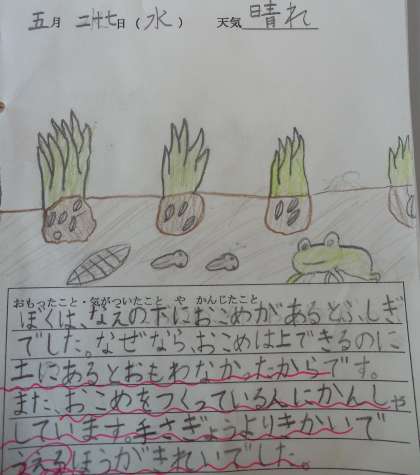 五月 二十七日（水） 天気 晴れ
おもったこと・気がついたこと や かんじたこと
ぼくは、なえの下におこめがあるとふしぎ
でした。なぜなら、おこめは上でできるのに
土にあるとおもわなかったからです。
また、おこめをつくっている人にかんしゃ
しています。手さぎょうよりきかいで
うえるほうがきれいでした。